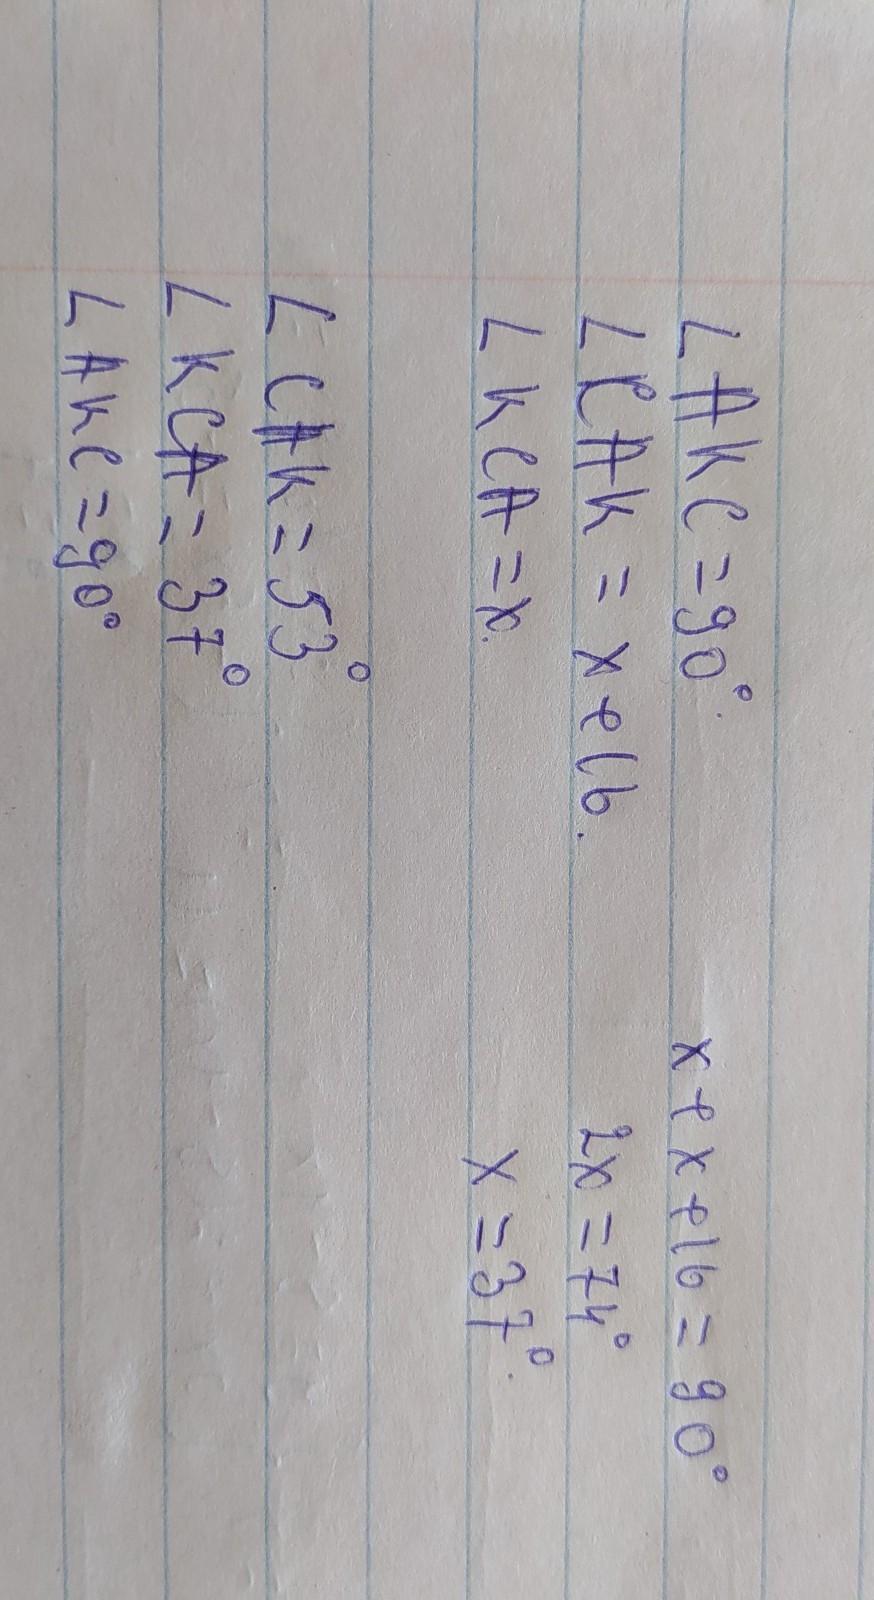 ∠AKC = 90°.
∠CAK = x + 16.
∠KCA = x.
x + x + 16 = 90°
2x = 74°
x = 37°.
∠CAK = 53°
∠KCA = 37°
∠AKC = 90°